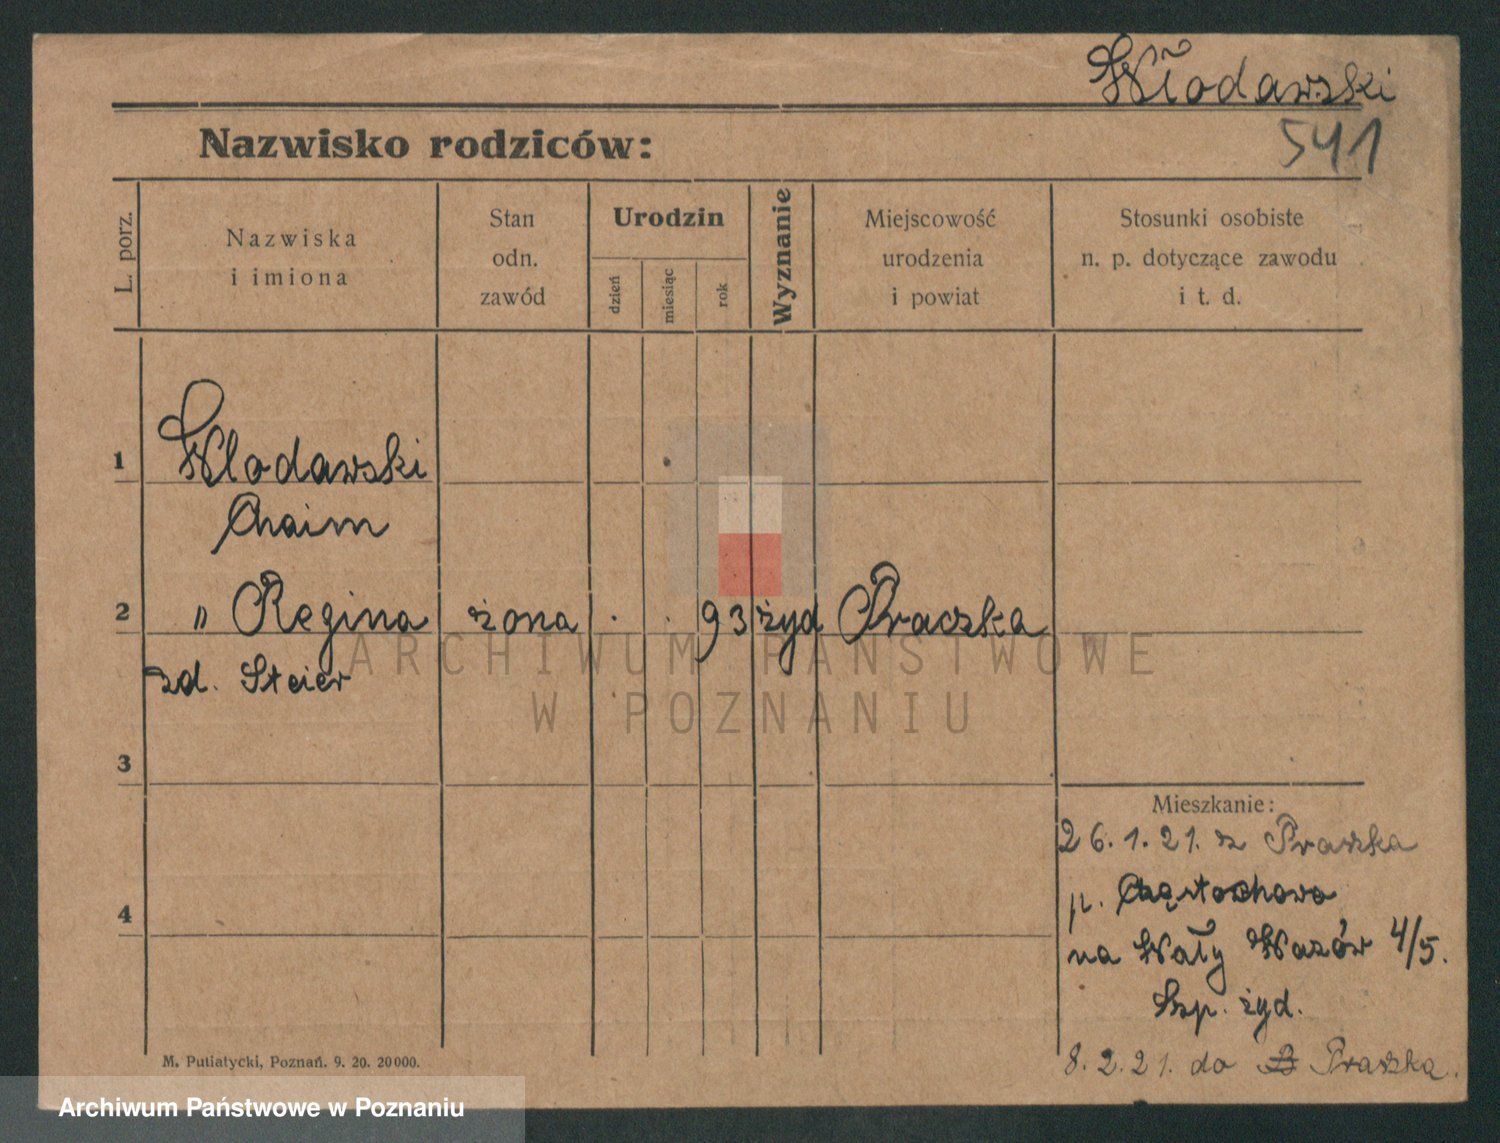 Włodawski
Nazwisko rodziców:
541
L. porz.
Nazwiska
i imiona
Stan
odn.
zawód
Urodzin
dzień
miesiąc
rok
Wyznanie
Miejscowość
urodzenia
i powiat
Stosunki osobiste
n. p. dotyczące zawodu
i t. d.
1
Wlodawski
Chaim
2
" Regina żona . . 93 żyd Praczka
zd. Steier
ARCHIWUM PAŃSTWOWE
W POZNANIU
3
Mieszkanie:
26.1.21. z Praszka
p. Częstochowa
4
na Wały Wazów 4/5.
Szp. żyd.
8.2.21. do Praszka.
M. Putiatycki, Poznań. 9. 20. 20000.
Archiwum Państwowe w Poznaniu